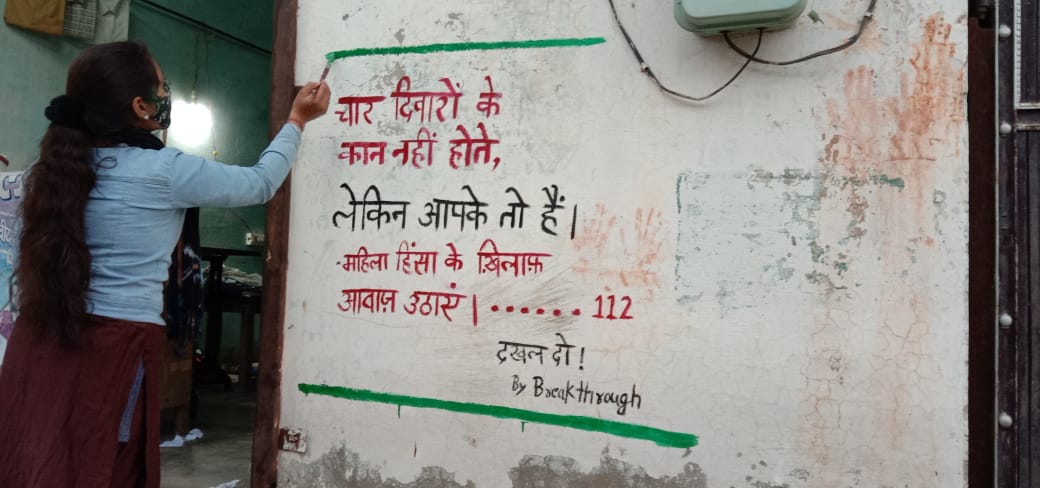 चार दिवारों के
कान नहीं होते,
लेकिन आपके तो हैं।
·महिला हिंसा के ख़िलाफ़
आवाज़ उठाएं। ...... 112
दखल दो!
By Breakthrough